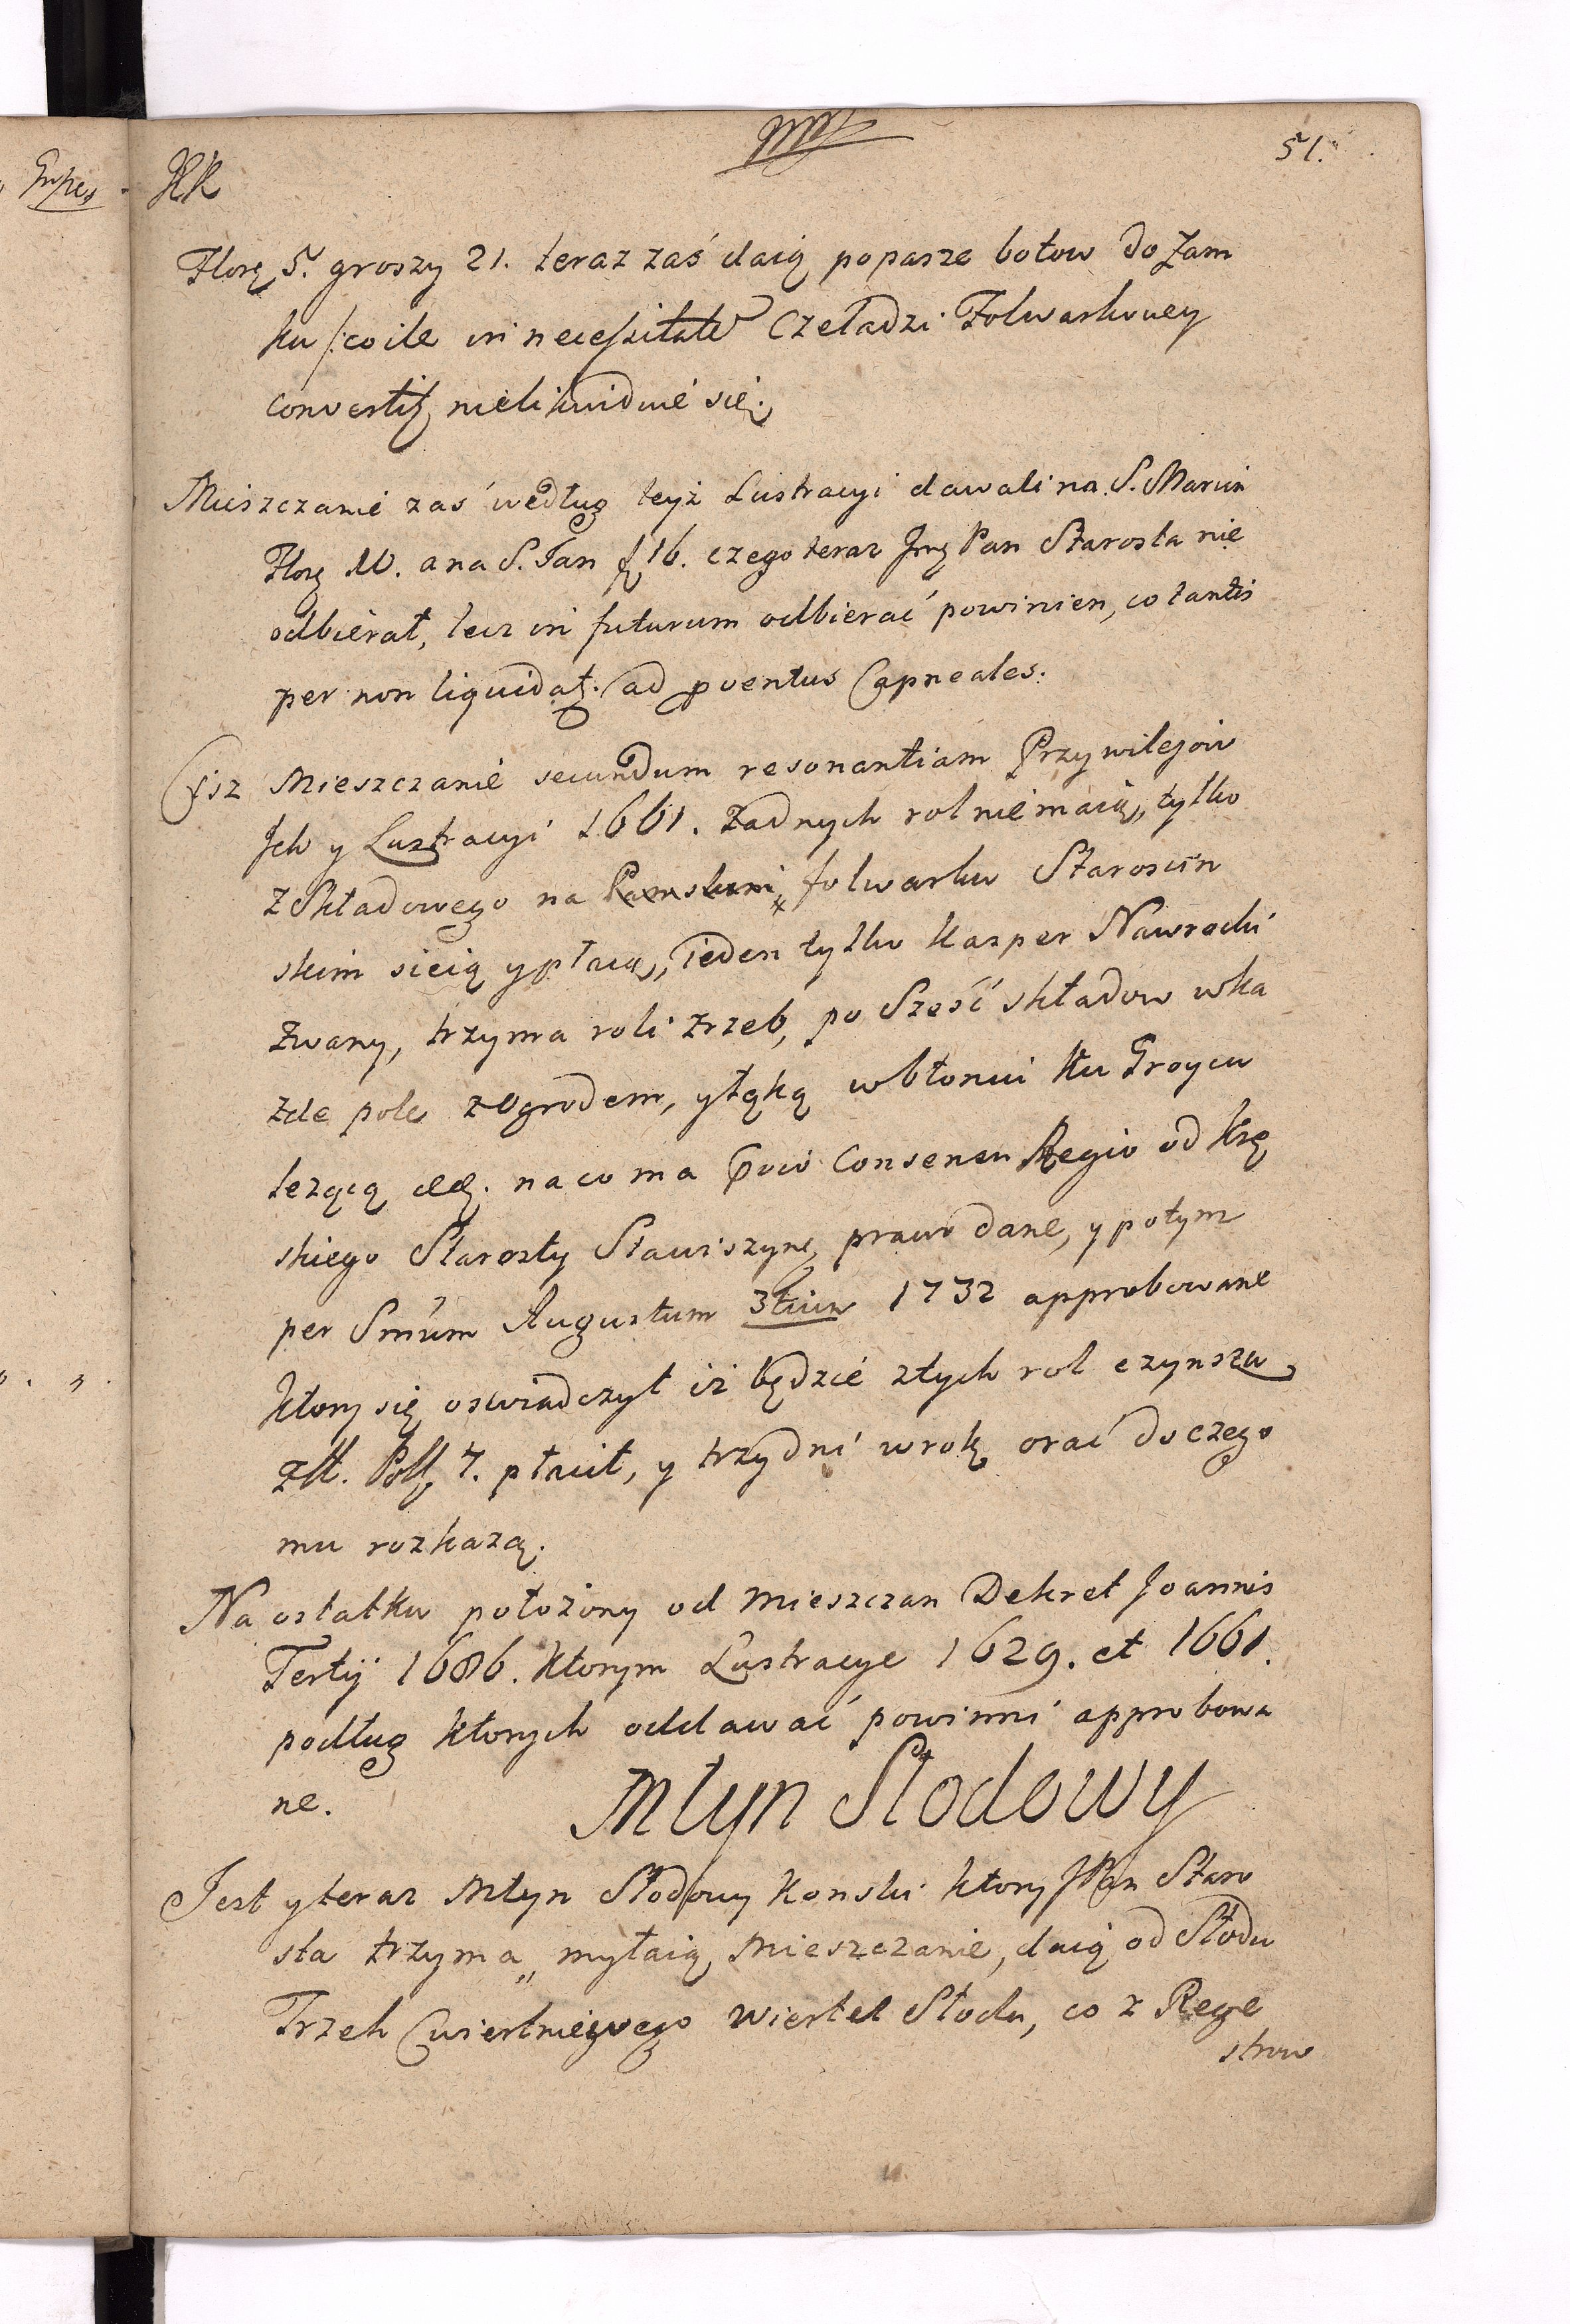 51.
KK
Flor. 5. groszy 21. teraz zaś daią po parze botow do Zam
ku /: co ile in necessitate Czeladzi Folwarkowey
convertit. nielikwiduie się.
Mieszczanie zaś według teyż Lustracyi dawali na S. Marcin
Flor. 10. a na S. Jan f. 16. czego teraz Jmć Pan Starosta nie
odbierał, lecz in futurum odbierać powinien, co tantis
per non liquidat. ad proventus
Ciż Mieszczanie secundum resonantiam Przywilejow
Ich y Lustracyi 1661. Zadnych rol nie maią, tylko
z Składowego na folwarku Starościn
skim sieią y płacą, ieden tylko Kasper Nawrocki
zwany, trzyma roli zrzeb, po Sześć składow w ka
żde pole z ogrodem, y łąką w błoniu ku Groycu
leżącą etc. na co ma Consensu Regio od
skiego Starosty Stawiszyn. prawo dane, y potym
per Smum Augustum 3tium 1732 approbowane
ktory się oswiadczył iż będzie z tych rol czynszu
Złł. Poll. 7. płacił, y trzy dni w rok orać do czego
mu rozkażą.
Na ostatku położony od Mieszczan Dekret Joannis
Tertij 1686. ktorym Lustracye 1629. et 1661.
podług ktorych oddawać powinni approbowa
ne.
Młyn Słodowy
Jest y teraz Młyn Słodowy Konski ktory JPan Staro
sta trzyma, mełaią Mieszczanie, daią od Słodu
Trzech Cwiertniowego wiertel Słodu, co z Rege
strow